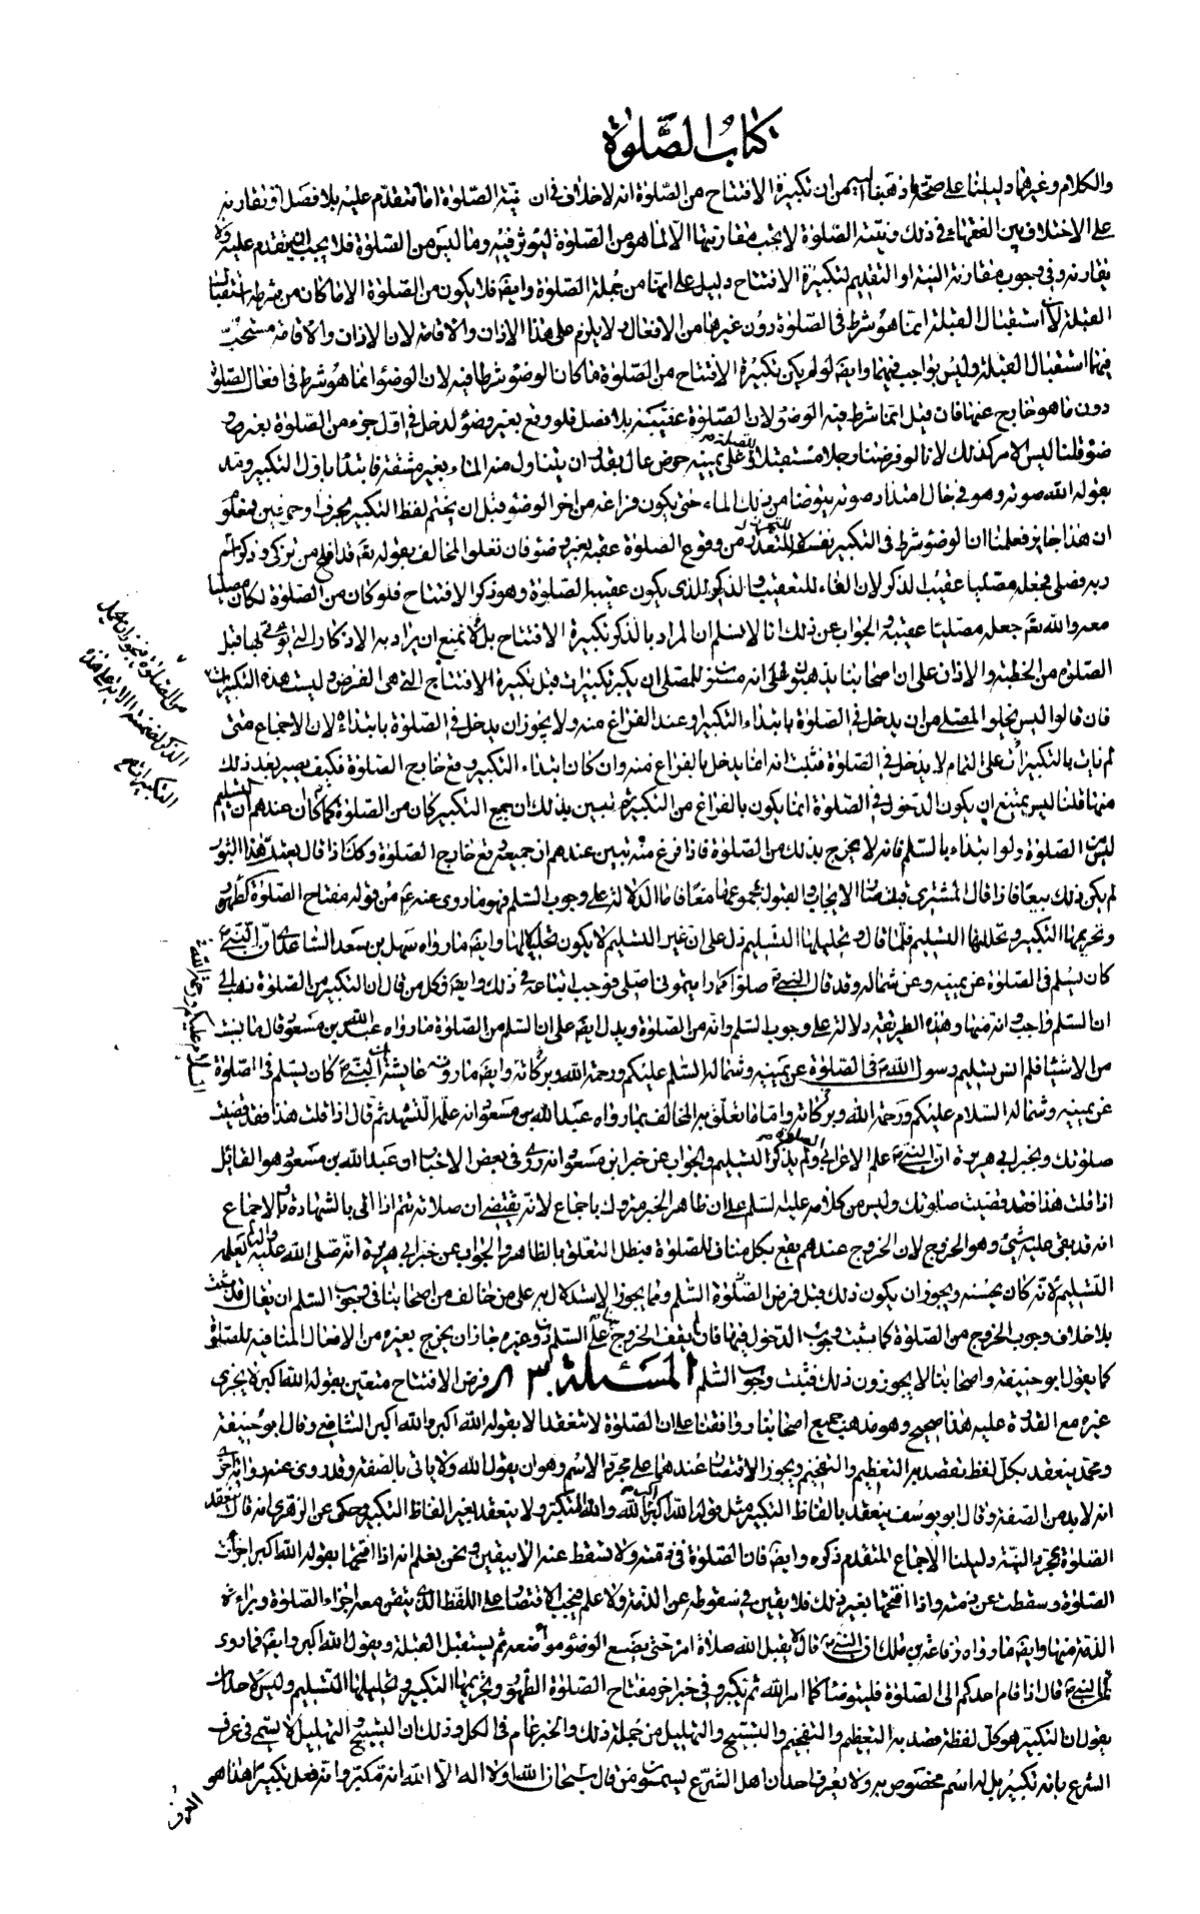 كتاب الصلوة
والكلام وغيرهما دليلنا على صحة ما ذهبنا اليه من ان تكبيرة الافتتاح من الصلوة انه لا خلاف في ان نية الصلوة اما تتقدم عليه بلا فصل او تقارنه
على الاختلاف بين الفقهاء في ذلك ونية الصلوة لا يجب مقارنتها الا لما هو من الصلوة ليؤثر فيه وما ليس من الصلوة فلا يجب ان يتقدم عليه ولا
يقارنه وفي وجوب مقارنة النية او التقديم لتكبيرة الافتتاح دليل على انها من جملة الصلوة وايضا فلا يكون من الصلوة الا ما كان من شرطه استقبال
القبلة لان استقبال القبلة انما هو شرط في الصلوة دون غيرها من الافعال ولا يلزم على هذا الاذان والاقامة لان الاذان والاقامة مستحب
فيهما استقبال القبلة وليس بواجب فيهما وايضا لو لم يكن تكبيرة الافتتاح من الصلوة ما كان الوضوء شرطا فيه لان الوضوء انما هو شرط في افعال الصلوة
دون ما هو خارج عنها فان قيل انما شرط فيه الوضوء لان الصلوة عقيبته بلا فصل فلو وقع بغير وضوء لدخل في اول جزء من الصلوة بغير و
ضوء قلنا ليس الامر كذلك لانا لو فرضنا رجلا مستقبلا للقبلة وعلى يمينه حوض عال يقدر ان يتناول منه الماء بغير مشقة فابتدأ باول التكبير ومد
بقوله الله صوته وهو في حال امتداد صوته يتوضأ من ذلك الماء حتى يكون فراغه من اخر الوضوء قبل ان يختم لفظ التكبير بحرف او حرفين فمعلوم
ان هذا جايز فعلمنا ان الوضوء شرط في التكبير نفسه لا للتعذر من وقوع الصلوة عقبه بغير وضوء فان تعلق المخالف بقوله تعالى قد افلح من تزكى وذكر اسم
ربه فصلى فجعله مصليا عقيب الذكر لان الفاء للتعقيب والذكر الذي يكون عقيبه الصلوة وهو ذكر الافتتاح فلو كان من الصلوة لكان مصليا
معه والله تعالى جعله مصليا عقيبه والجواب عن ذلك انا لا نسلم ان المراد بالذكر تكبيرة الافتتاح بل لا نمنع ان يراد به الاذكار التي يؤتى بها قبل
الصلوة من الخطبة والاذان على ان اصحابنا يذهبون الى انه مسنون للمصلي ان يكبر تكبيرات قبل تكبيرة الافتتاح التي هي الفرض وليست هذه التكبيرات
من الصلوة فيجوز ان يحمل
الذكر الذي تضمنته الاية على هذه
التكبيرات
فان قالوا ليس يخلو المصلي من ان يدخل في الصلوة بابتداء التكبير او عند الفراغ منه ولا يجوز ان يدخل في الصلوة بابتدائه لان الاجماع متى
لم يات بالتكبير على التمام لا يدخل في الصلوة فثبت انه انما يدخل بالفراغ منه وان كان ابتداء التكبير وقع خارج الصلوة فكيف يصير بعد ذلك
منها قلنا ليس يمتنع ان يكون الدخول في الصلوة انما يكون بالفراغ من التكبير ثم تبين بذلك ان جميع التكبير كان من الصلوة كما كان عندهم ان التسليم
ليس من الصلوة ولو ابتداء بالسلم فانه لا يخرج بذلك من الصلوة فاذا فرغ منه تبين عندهم ان جميعه وقع خارج الصلوة وكذا اذا قال بعتك هذا الثوب
لم يكن ذلك بيعا فاذا قال المشتري قبلت صار الايجاب والقبول بمجموعهما معا فاما الدلالة على وجوب السلم فهو ما روى عنه ع من قوله مفتاح الصلوة الطهور
وتحريمها التكبير وتحليلها التسليم فلما قال وتحليلها التسليم دل على ان غير التسليم لا يكون تحليلا لها وايضا ما رواه سهل بن سعد الساعدي ان النبي ص
كان يسلم في الصلوة عن يمينه وعن شماله وقد قال النبي ص صلوا كما رايتموني اصلي فوجب اتباعه في ذلك وايضا فكل من قال ان التكبير من الصلوة ذهب الى
ان السلم واجب وانه منها وهذه الطريقة دلالة على وجوب السلم وانه من الصلوة ويدل ايضا على ان السلم من الصلوة ما رواه عبد الله بن مسعود قال ما نسيت
من الاشياء فلم انس تسليم رسول الله ص في الصلوة عن يمينه وشماله السلم عليكم ورحمة الله وبركاته وايضا ما روته عايشة ان النبي ص كان يسلم في الصلوة
السلام عليكم ورحمة الله
عن يمينه وشماله السلام عليكم ورحمة الله وبركاته واما ما تعلق به المخالف بما رواه عبد الله بن مسعود انه علمه التشهد ثم قال اذا قلت هذا فقد قضيت
صلوتك وبخبر ابي هريرة ان النبي ص علم الاعرابي الصلوة ولم يذكر التسليم والجواب عن خبر ابن مسعود انه روى في بعض الاخبار ان عبد الله بن مسعود هو القائل
اذا قلت هذا فقد قضيت صلوتك وليس من كلامه عليه السلم على ان ظاهر الخبر متروك باجماع لانه يقتضي ان صلاته تتم اذا اتى بالشهادة وبالاجماع
انه قد بقى عليه شيء وهو الخروج لان الخروج عندهم يقع بكل مناف للصلوة فبطل التعلق بالظاهر والجواب عن خبر ابي هريرة انه صلى الله عليه واله لم يعلمه
التسليم لانه كان يحسنه ويجوز ان يكون ذلك قبل فرض الصلوة السلم ومما يجوز الاستدلال به على من خالف من اصحابنا في وجوب السلم ان يقال قد ثبت
بلا خلاف وجوب الخروج من الصلوة كما ثبت وجوب الدخول فيها فان لم يقف الخروج على السلم دون غيره جاز ان يخرج بغيره من الافعال المنافية للصلوة
كما يقول ابو حنيفة واصحابنا لا يجوزون ذلك فثبت وجوب السلم المسئلة ٨٣ فرض الافتتاح متعين بقوله الله اكبر لا يجزى
غيره مع القدرة عليه هذا صحيح وهو مذهب جميع اصحابنا ووافقنا على ان الصلوة لا تنعقد الا بقوله الله اكبر والله اكبر الشافعي وقال ابو حنيفة
ومحمد ينعقد بكل لفظ تقصد به التعظيم والتفخيم ويجوز الاقتصار عندهما على مجرد الاسم وهو ان يقول الله ولا ياتي بالصفة وقد روى عنه رواية اخرى
انه لا بد من الصفة وقال ابو يوسف ينعقد بالفاظ التكبير مثل قوله الله اكبر الله الاكبر والله الكبير ولا ينعقد بغير الفاظ التكبير وحكى عن الزهري انه قال تنعقد
الصلوة بمجرد النية دليلنا الاجماع المتقدم ذكره وايضا فان الصلوة في ذمته ولا تسقط عنه الا بيقين ونحن نعلم انه اذا افتتحها بقوله الله اكبر اجزأت
الصلوة وسقطت عن ذمته واذا افتتحها بغير ذلك فلا يقين في سقوطه عن الذمة ولا علم فيجب الاقتصار على اللفظ الذي يتيقن معه اجزاء الصلوة وبراءة
الذمة منها وايضا ما رواه رفاعة بن ملك ان النبي ص قال لا يقبل الله صلاة امرئ حتى يضع الوضوء مواضعه ثم يستقبل القبلة ويقول الله اكبر وايضا فما روى
عن النبي ص قال اذا قام احدكم الى الصلوة فليتوضأ كما امر الله ثم تكبر وفي خبر اخر مفتاح الصلوة الطهور وتحريمها التكبير وتحليلها التسليم وليس لاحد ان
يقول ان التكبير هو كل لفظة قصد به التعظيم والتفخيم والتسبيح والتهليل من جملة ذلك والخبر عام في الكل وذلك ان التسبيح والتهليل لا يسمى في عرف
الشرع بانه تكبير بل له اسم مخصوص به ولا يعرف احد ان اهل الشرع ليسمون من قال سبحان الله ولا اله الا الله انه مكبر وانه فعل تكبيرا هذا هو
العرف